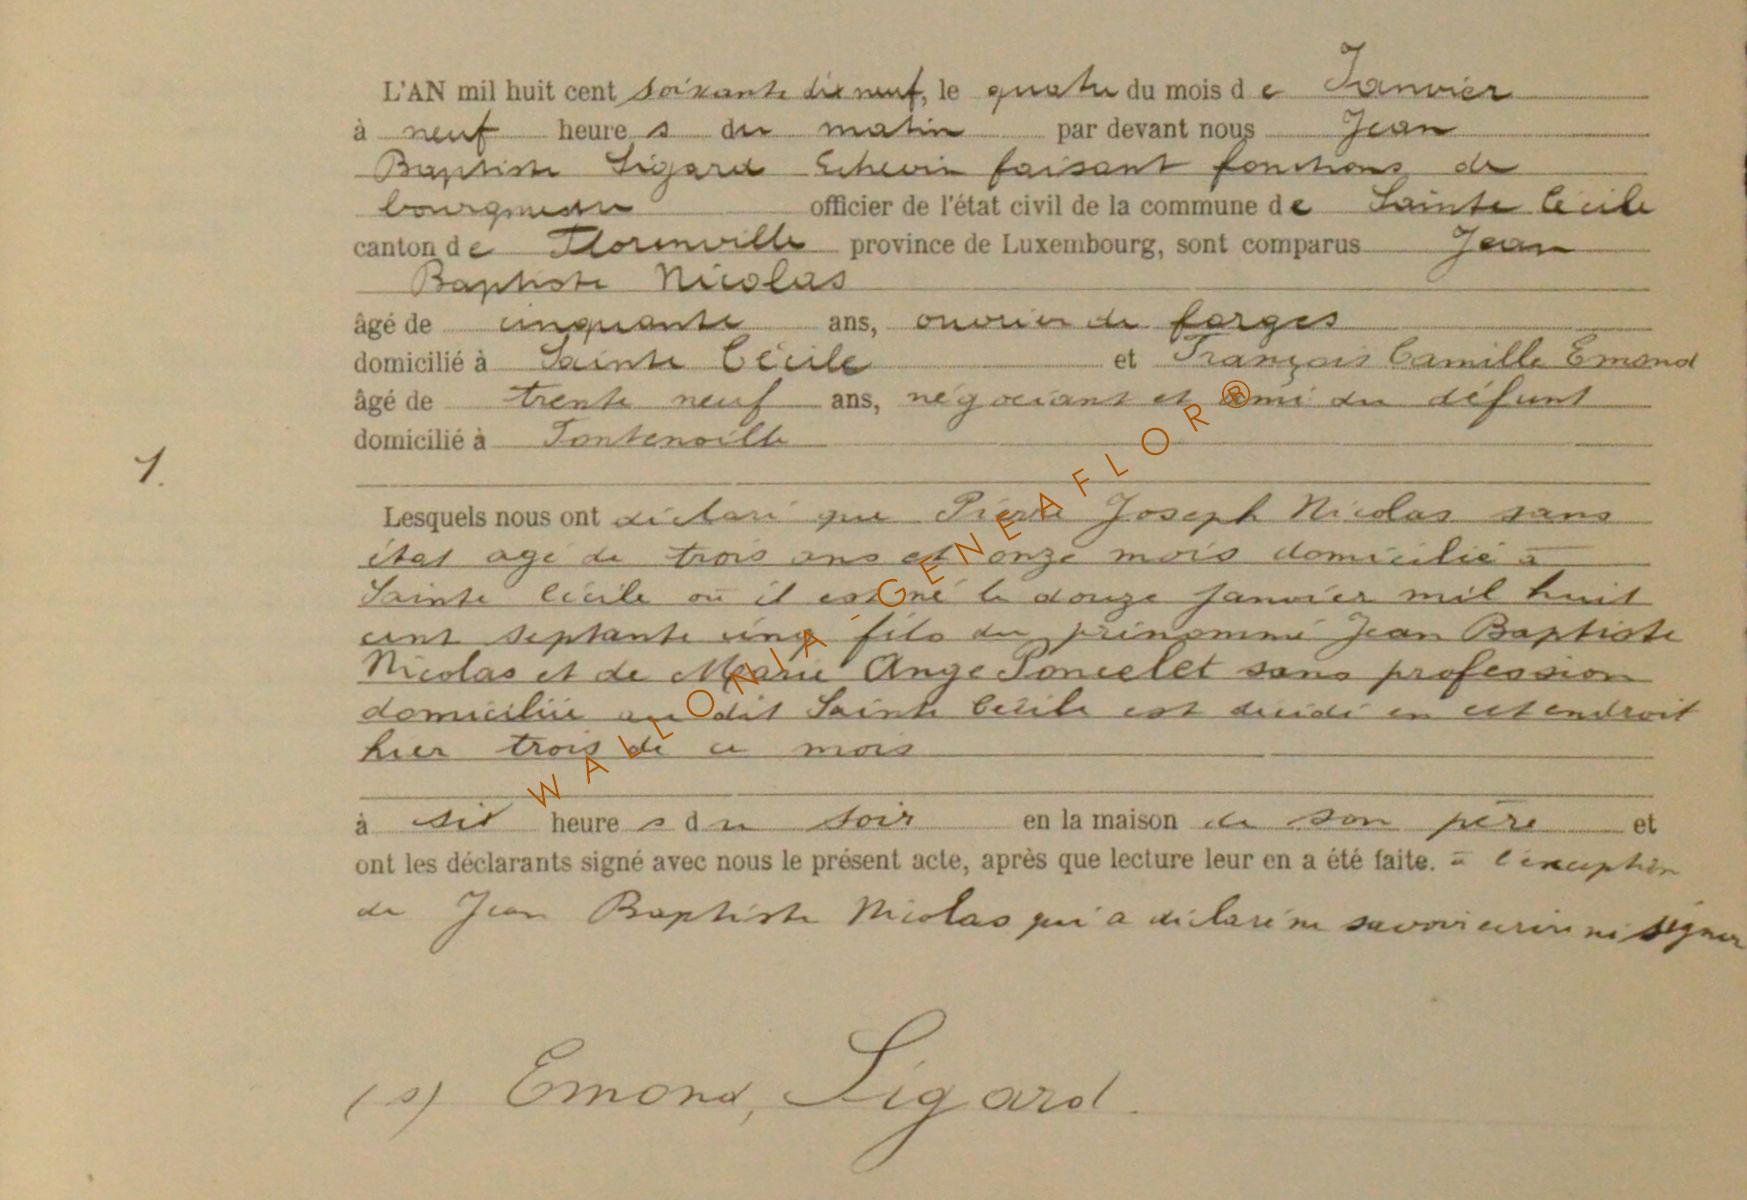 L'AN mil huit cent soixante dix neuf, le quatre du mois de Janvier
à neuf heures du matin par devant nous Jean
Baptiste Sigard Echevin faisant fonctions de
bourgmestre officier de l'état civil de la commune de Sainte Cécile
canton de Florenville province de Luxembourg, sont comparus Jean
Baptiste Nicolas
âgé de cinquante ans, ouvrier de forges
domicilié à Sainte Cécile et François Camille Emond
âgé de trente neuf ans, négociant et ami du défunt
domicilié à Fontenoille
1.
Lesquels nous ont déclaré que Pierre Joseph Nicolas sans
état agé de trois ans et onze mois domicilié à
Sainte Cécile où il est né le douze janvier mil huit
cent septante cinq fils du prénommé Jean Baptiste
Nicolas et de Marie Ange Poncelet sans profession
domiciliée au dit Sainte Cécile est décidé en cet endroit
hier trois de ce mois
à six heures du soir en la maison de son père et
ont les déclarants signé avec nous le présent acte, après que lecture leur en a été faite. à l'exception
de Jean Baptiste Nicolas qui a déclaré ne savoir écrire ni signer
(s) Emond, Sigard.
WALLONIA-GENEAFLOR®